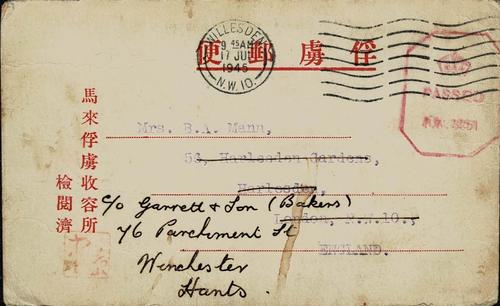 WILLESDEN
9 45 AM
17 JUL
1945
N.W.10.
便郵虜俘
PASSED
馬來俘虜收容所
檢閱濟
Mrs. B.A. Mann,
53, Harlesden Gardens,
Harlesden,
London, N.W.10.,
ENGLAND.
c/o Garrett & Son (Bakers)
76 Parchment St
Winchester
Hants.